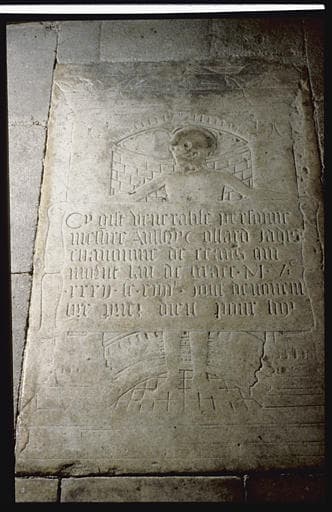 Cy gist venerable persone
messire Collard Jadis
chanoinne de ceans qui
mourut lan de grace M Vc
xxxii le jour de novem
bre priez dieu pour luy